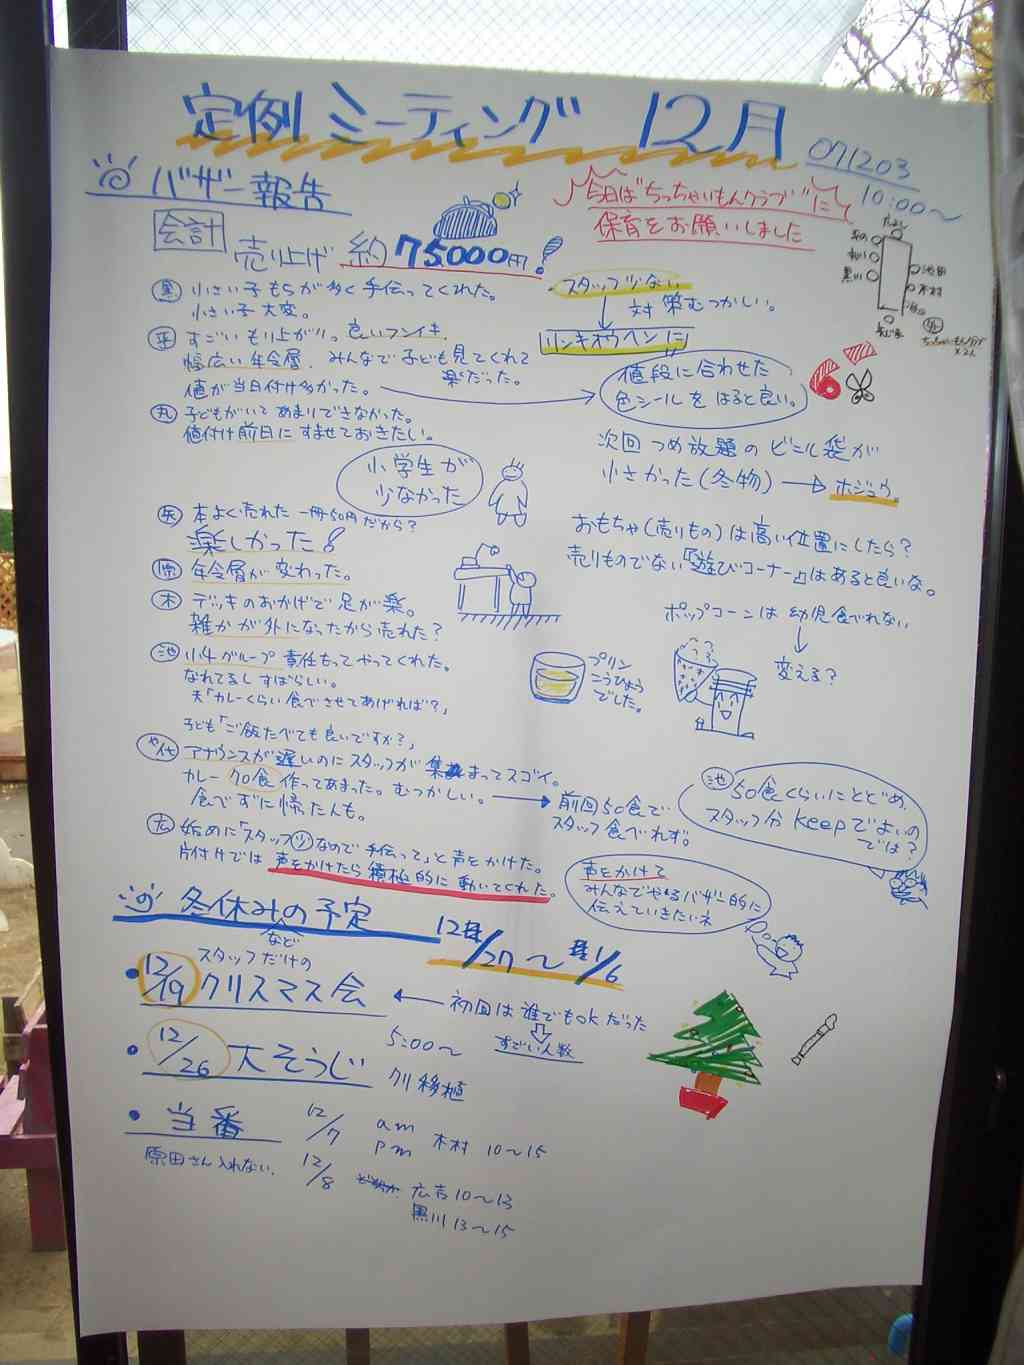 定例ミーティング 12月
071203
10:00〜
バザー報告
今日は"ちっちゃいもんクラブ"に
保育をお願いしました
会計
売り上げ 約75000円!
黒 小さい子もらが多く手伝ってくれた。
小さい子大変。
平 すごいもり上がり。良いフンイキ、
幅広い年令層、みんなで子ども見てくれて
楽だった。
値が当日付け多かった。
丸 子どもがいてあまりできなかった。
値付け前日にすませておきたい。
スタッフ少ない
対策むつかしい。
リンキオウヘンに
値段に合わせた
色シールをはると良い。
黒川
池田
木村
外
×2人
小学生が
少なかった
次回つめ放題のビニル袋が
小さかった(冬物)→ホジュウ。
矢 本よく売れた 一冊50円だから?
楽しかった!
おもちゃ(売りもの)は高い位置にしたら?
売りものでない『遊びコーナー』はあると良いな。
原 年令層が変わった。
木 デッキのおかげで足が楽。
雑かが外になったから売れた?
ポップコーンは幼児食べれない
変える?
池 小4グループ責任もってやってくれた。
なれてるしすばらしい。
夫「カレーくらい食べさせてあげれば?」
子ども「ご飯たべても良いですか?」
プリン
こうひょう
でした。
や代 アナウンスが遅いのにスタッフが集まってスゴイ。
カレー70食作ってあまった。むつかしい。
食べずに帰たんも。
前回50食で
スタッフ食べれず。
池 50食くらいにとどめ、
スタッフ分keepでよいの
では?
広 始めに「スタッフ なので手伝って」と声をかけた。
片付けでは声をかけたら積極的に動いてくれた。
声をかけて
みんなでやるバザー的に
伝えていきたいネ
冬休みの予定
など
12/27〜1/6
スタッフだけの
・12/19 クリスマス会
初回は誰でもokだった
すごい人数
・12/26 大そうじ
5:00〜
クリ移植
・当番
12/7 am
pm 木村 10〜15
原田さん入れない。
12/8 広吉10〜13
黒川13〜15